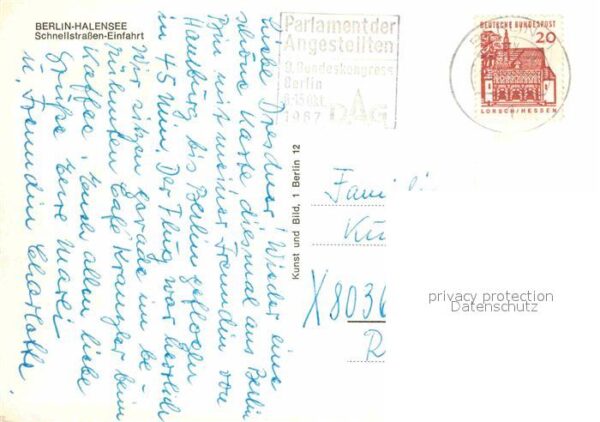 BERLIN-HALENSEE
Schnellstraßen-Einfahrt
Liebe Dresdner! Wieder eine
schöne Karte diesmal aus Berlin
Bin mit meiner Freundin von
Hamburg bis Berlin geflogen
in 45 Min. Der Flug war herrlich
Wir sitzen gerade im be-
rühmten Café Kranzler beim
Kaffee. Euch allen liebe
Grüße Eure Marei
u. Freundin Charlotte.
Kunst und Bild, 1 Berlin 12
Parlament der
Angestellten
9. Bundeskongress
Berlin
1967 DAG
DEUTSCHE BUNDESPOST
20
LORSCH/HESSEN
Famili
Ku
X8036
R
privacy protection
Datenschutz